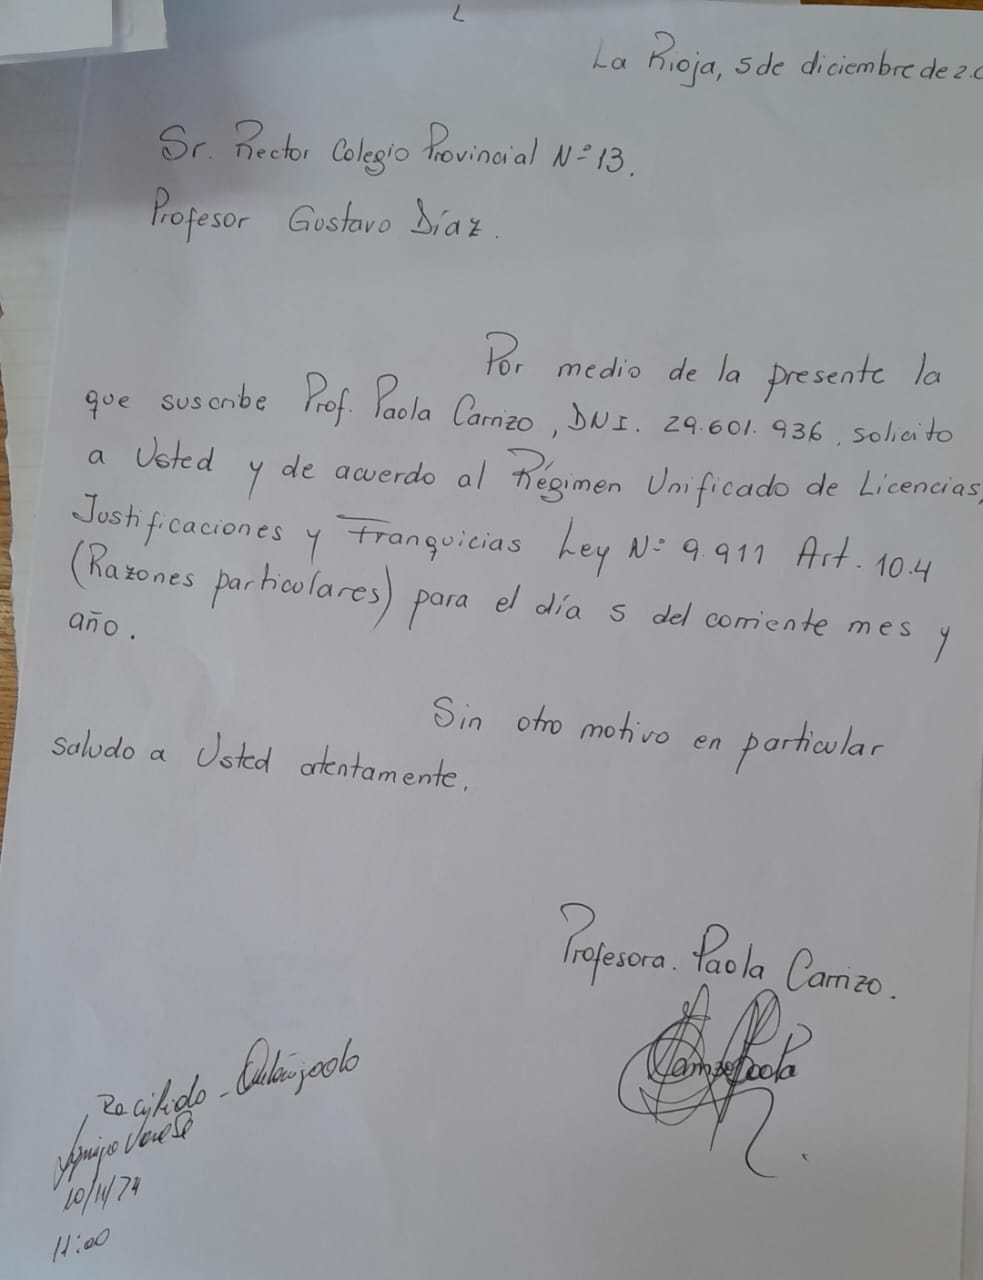 La Rioja, 5 de diciembre de 2.0
Sr. Rector Colegio Provincial N° 13.
Profesor Gustavo Díaz.
Por medio de la presente la
que suscribe Prof. Paola Carrizo, DNI. 29.601.936, solicito
a Usted y de acuerdo al Régimen Unificado de Licencias,
Justificaciones y Franquicias Ley N° 9.911 Art. 10.4
(Razones particulares) para el día 5 del corriente mes y
año.
Sin otro motivo en particular
saludo a Usted atentamente.
Profesora. Paola Carrizo.
Paola
Recibido
11:00